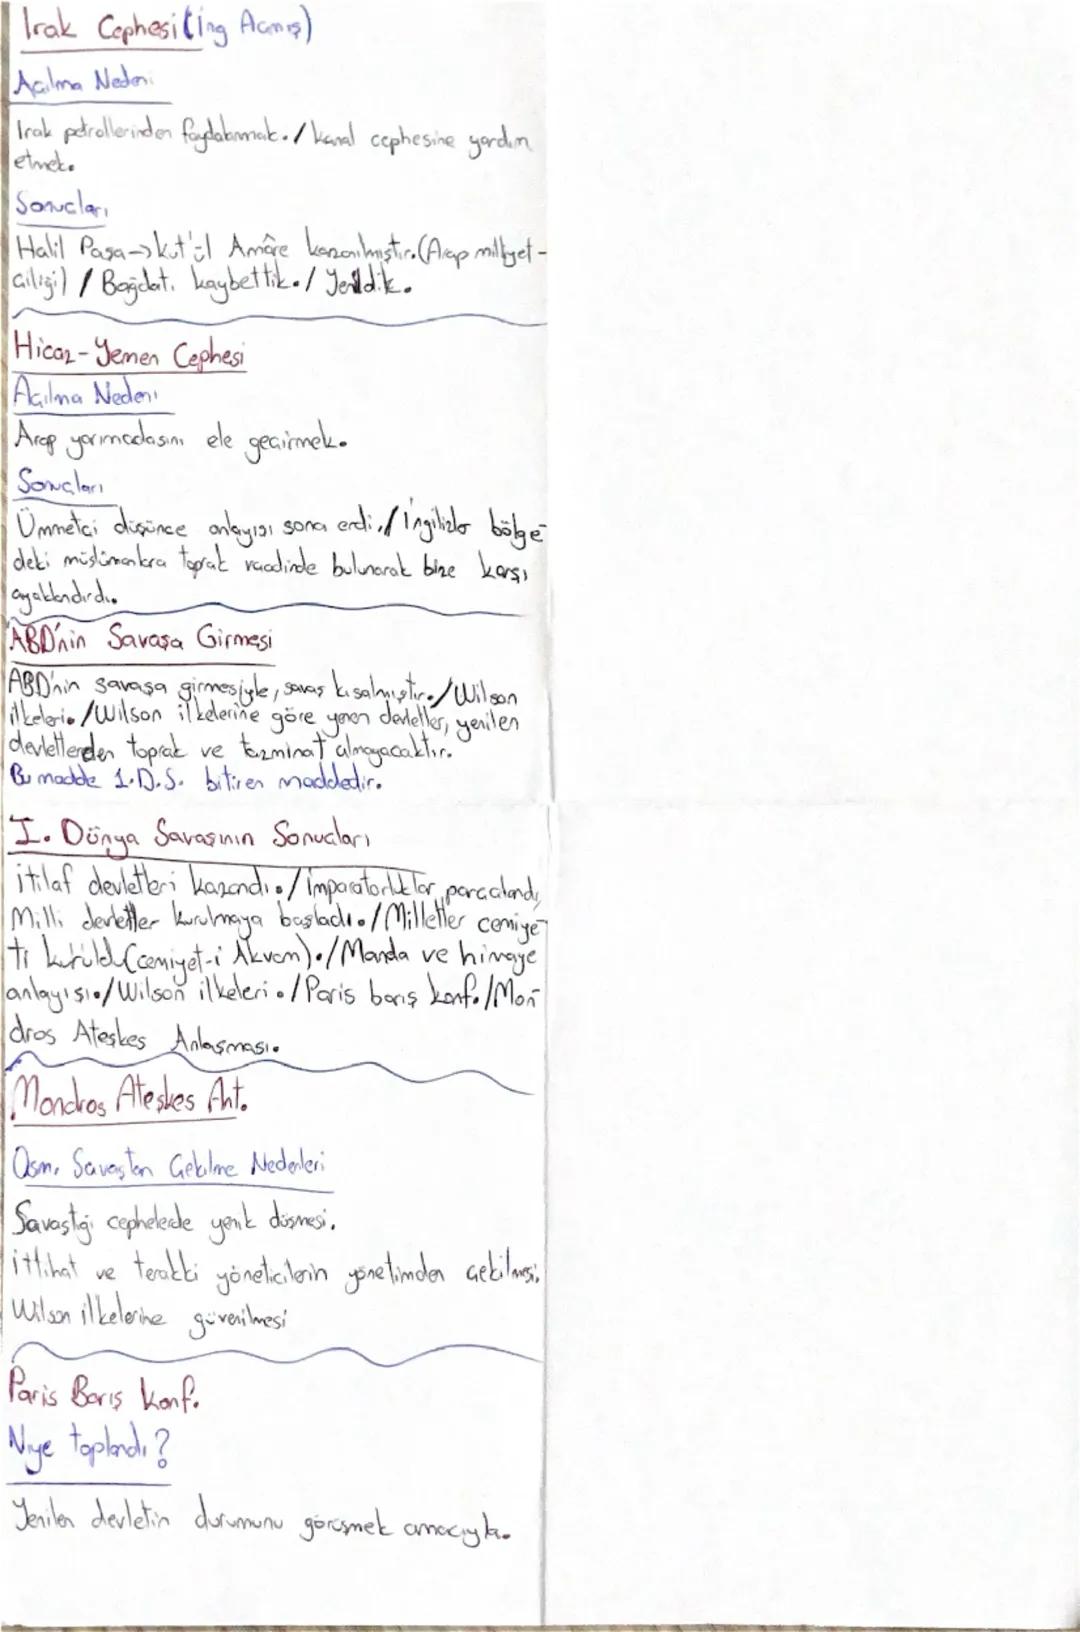 Irak Cephesi (İng Açmış)
Açılma Nedeni
Irak petrollerinden faydalanmak. / Kanal cephesine yardım
etmek.
Sonuçları
Halil Paşa → kut'ül Amâre kazanılmıştır. (Arap milliyet-
çiliği) / Bağdatı kaybettik. / Yenildik.
Hicaz-Yemen Cephesi
Açılma Nedeni
Arap yarımadasını ele geçirmek.
Sonuçları
Ümmetçi düşünce anlayışı sona erdi. / İngilizler bölge-
deki müslümanlara toprak vaadinde bulunarak bize karşı
ayaklandırdı.
ABD'nin Savaşa Girmesi
ABD'nin savaşa girmesiyle, savaş kısalmıştır. / Wilson
ilkeleri. / Wilson ilkelerine göre yenen devletler, yenilen
devletlerden toprak ve tazminat almayacaktır.
Bu madde 1.D.S. bitiren maddedir.
I. Dünya Savaşının Sonuçları
itilaf devletleri kazandı. / İmparatorluklar parçalandı,
Milli devletler kurulmaya başladı. / Milletler cemiye-
ti kuruldu (cemiyet-i Akvam). / Manda ve himaye
anlayışı. / Wilson ilkeleri. / Paris barış konf. / Mon-
dros Ateşkes Anlaşması.
Mondros Ateşkes Ant.
Osm. Savaştan Çekilme Nedenleri
Savaştığı cephelerde yenik düşmesi.
ittihat ve terakki yöneticilerin yönetimden çekilmesi.
Wilson ilkelerine güvenilmesi
Paris Barış Konf.
Niye toplandı?
Yenilen devletin durumunu görüşmek amacıyla.